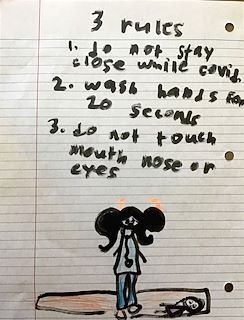 3 rules
1. do not stay
close while covid
2. wash hands for
20 seconds
3. do not touch
mouth nose or
eyes